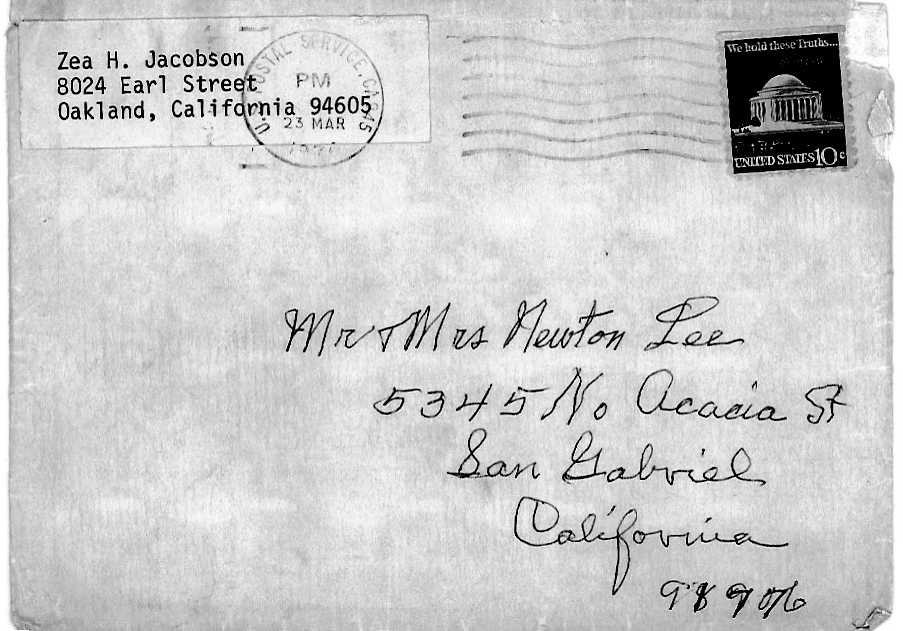 Zea H. Jacobson
8024 Earl Street
Oakland, California 94605
U.S. POSTAL SERVICE, CA 945
PM
23 MAR
We hold these Truths...
UNITED STATES 10c
Mr & Mrs Newton Lee
5345 No Acacia St
San Gabriel
California